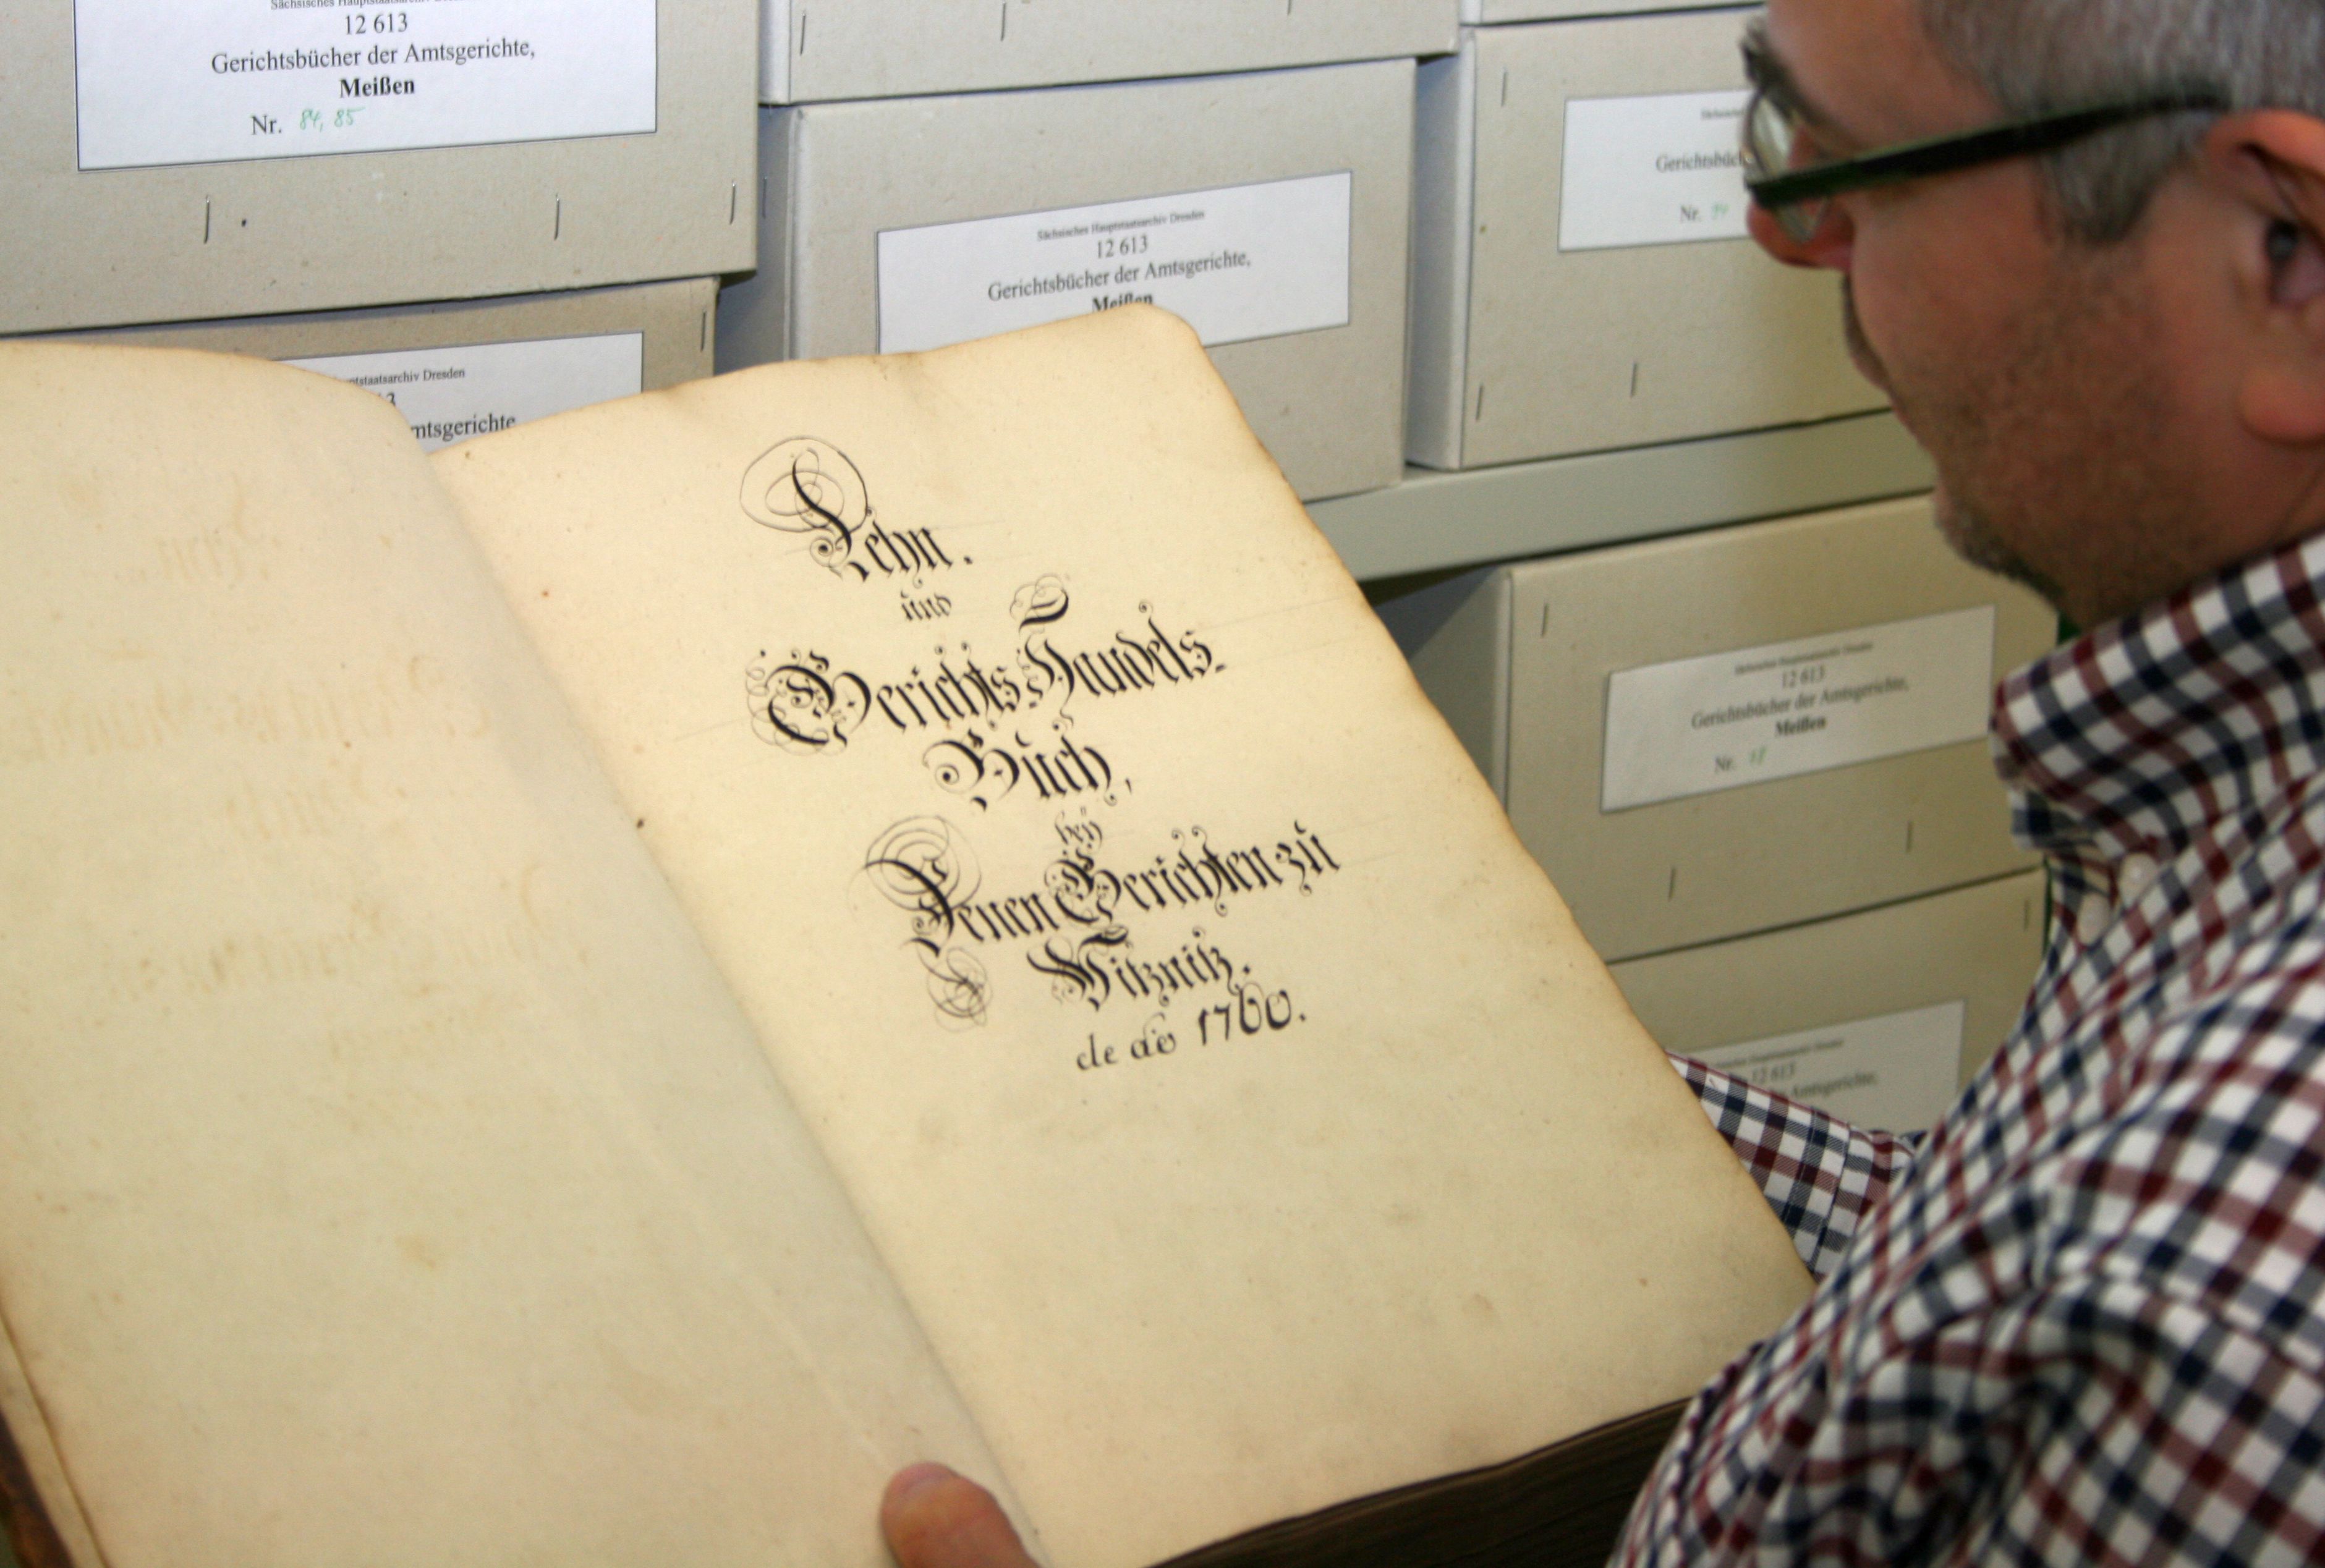 Sächsisches Hauptstaatsarchiv
12 613
Gerichtsbücher der Amtsgerichte,
Meißen
Nr. 84, 85
Sächsisches Hauptstaatsarchiv Dresden
12 613
Gerichtsbücher der Amtsgerichte,
Meißen
Gerichtsbüch
Nr.
ptstaatsarchiv Dresden
13
mtsgerichte
Lehn.
und
Gerichts Handels-
Buch,
bey
Denen Gerichten zu
Witznitz.
de ao 1760.
Sächsisches Hauptstaatsarchiv Dresden
12 613
Gerichtsbücher der Amtsgerichte,
Meißen
Nr.
Hauptstaatsarchiv Dresden
12 613
Amtsgerichte,